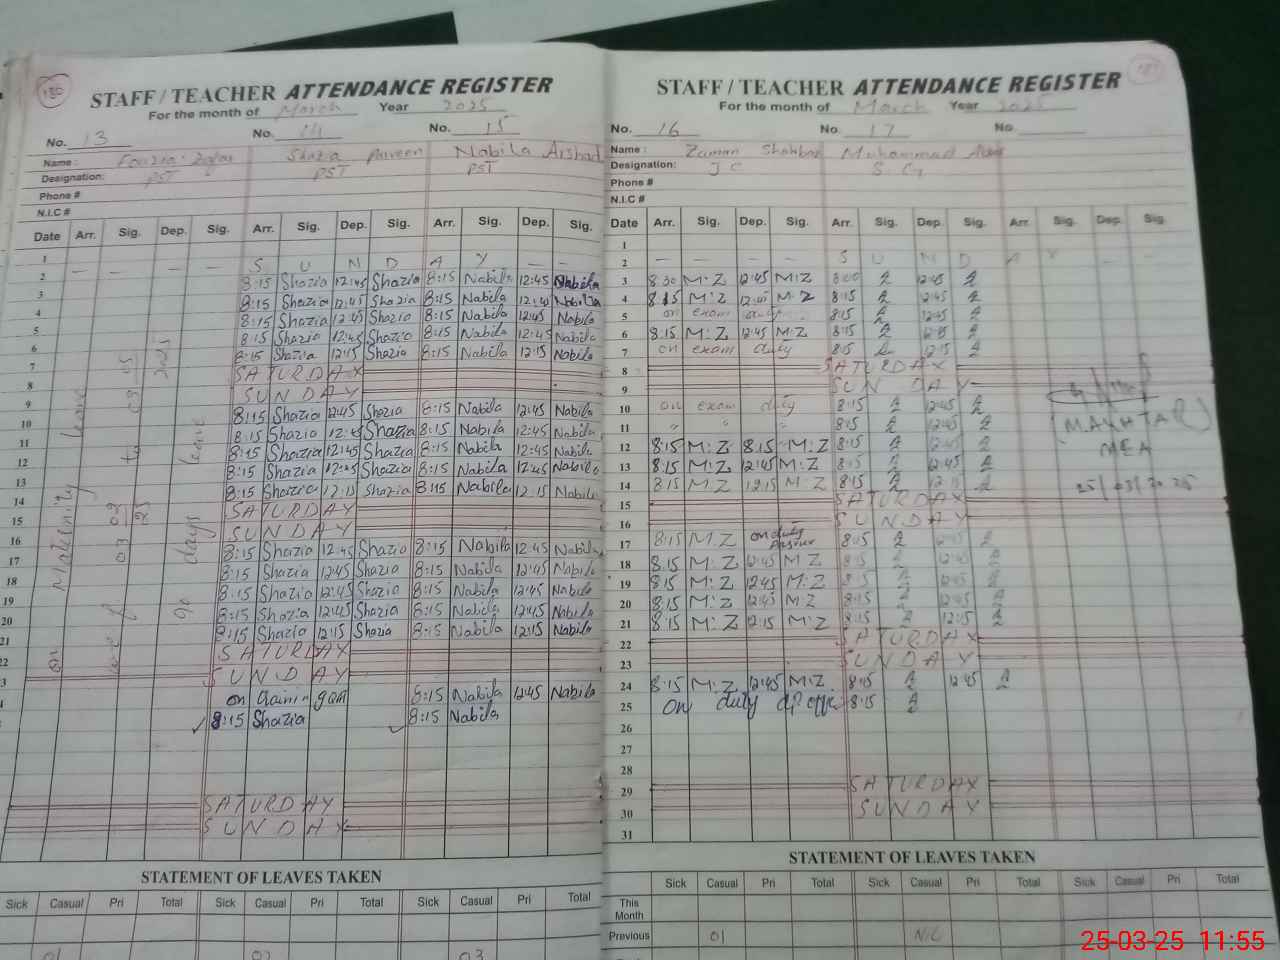 130
STAFF / TEACHER ATTENDANCE REGISTER
For the month of March Year 2025
No. 13 No. 14 No. 15
Name : Fouzia Zafar Shazia Parveen Nabila Arshad
Designation: PST PST PST
Phone #
N.I.C #
Date Arr. Sig. Dep. Sig. Arr. Sig. Dep. Sig. Arr. Sig. Dep. Sig.
1
2 — — — — S U N D A Y — —
3 8:15 Shazia 12:45 Shazia 8:15 Nabila 12:45 Nabila
4 8:15 Shazia 12:45 Shazia 8:15 Nabila 12:45 Nabila
5 8:15 Shazia 12:45 Shazia 8:15 Nabila 12:45 Nabila
6 8:15 Shazia 12:45 Shazia 8:15 Nabila 12:45 Nabila
7 8:15 Shazia 12:15 Shazia 8:15 Nabila 12:15 Nabila
8 SATURDAY
9 SUNDAY
10 8:15 Shazia 12:45 Shazia 8:15 Nabila 12:45 Nabila
11 8:15 Shazia 12:45 Shazia 8:15 Nabila 12:45 Nabila
12 8:15 Shazia 12:45 Shazia 8:15 Nabila 12:45 Nabila
13 8:15 Shazia 12:45 Shazia 8:15 Nabila 12:45 Nabila
14 8:15 Shazia 12:15 Shazia 8:15 Nabila 12:15 Nabila
15 SATURDAY
16 SUNDAY
17 8:15 Shazia 12:45 Shazia 8:15 Nabila 12:45 Nabila
18 8:15 Shazia 12:45 Shazia 8:15 Nabila 12:45 Nabila
19 8:15 Shazia 12:45 Shazia 8:15 Nabila 12:45 Nabila
20 8:15 Shazia 12:45 Shazia 8:15 Nabila 12:45 Nabila
21 8:15 Shazia 12:15 Shazia 8:15 Nabila 12:15 Nabila
22 SATURDAY
23 SUNDAY
on 8:15 Nabila 12:45 Nabila
8:15 Shazia 8:15 Nabila
SATURDAY
SUNDAY
on Maternity leave
03 03 25 to 03 05 2025
90 days leave
STATEMENT OF LEAVES TAKEN
Sick Casual Pri Total Sick Casual Pri Total Sick Casual Pri Total
01 03
STAFF / TEACHER ATTENDANCE REGISTER
For the month of March Year 2025
No. 16 No. 17 No.
Name : Zaman Shahbaz Muhammad
Designation: J C S. G
Phone #
N.I.C #
Date Arr. Sig. Dep. Sig. Arr. Sig. Dep. Sig. Arr. Sig. Dep. Sig.
1
2 — — — — S U N D A Y
3 8:30 M:Z 12:45 M:Z 8:00 12:45
4 8:15 M:Z 12:45 M:Z 8:15 12:45
5 on exam duty 8:15 12:45
6 8:15 M:Z 12:45 M:Z 8:15 12:45
7 on exam duty 8:15 12:15
8 SATURDAY
9 SUNDAY
10 on exam duty 8:15 12:45
11 " " " 8:15 12:45
12 8:15 M:Z 8:15 M:Z 8:15 12:45
13 8:15 M:Z 12:45 M:Z 8:15 12:45
14 8:15 M:Z 12:15 M:Z 8:15 12:15
15 SATURDAY
16 SUNDAY
17 8:15 M:Z on duty 8:15 12:45
18 8:15 M:Z 12:45 M:Z 8:15 12:45
19 8:15 M:Z 12:45 M:Z 8:15 12:45
20 8:15 M:Z 12:45 M:Z 8:15 12:45
21 8:15 M:Z 12:15 M:Z 8:15 12:15
22 SATURDAY
23 SUNDAY
24 8:15 M:Z 12:45 M:Z 8:15 12:45
25 on duty 8:15
26
27
28
29 SATURDAY
30 SUNDAY
31
(MAKHTAR)
MEA
25/03/2025
STATEMENT OF LEAVES TAKEN
Sick Casual Pri Total Sick Casual Pri Total Sick Casual Pri Total
This Month
Previous 01 NIL
25-03-25 11:55